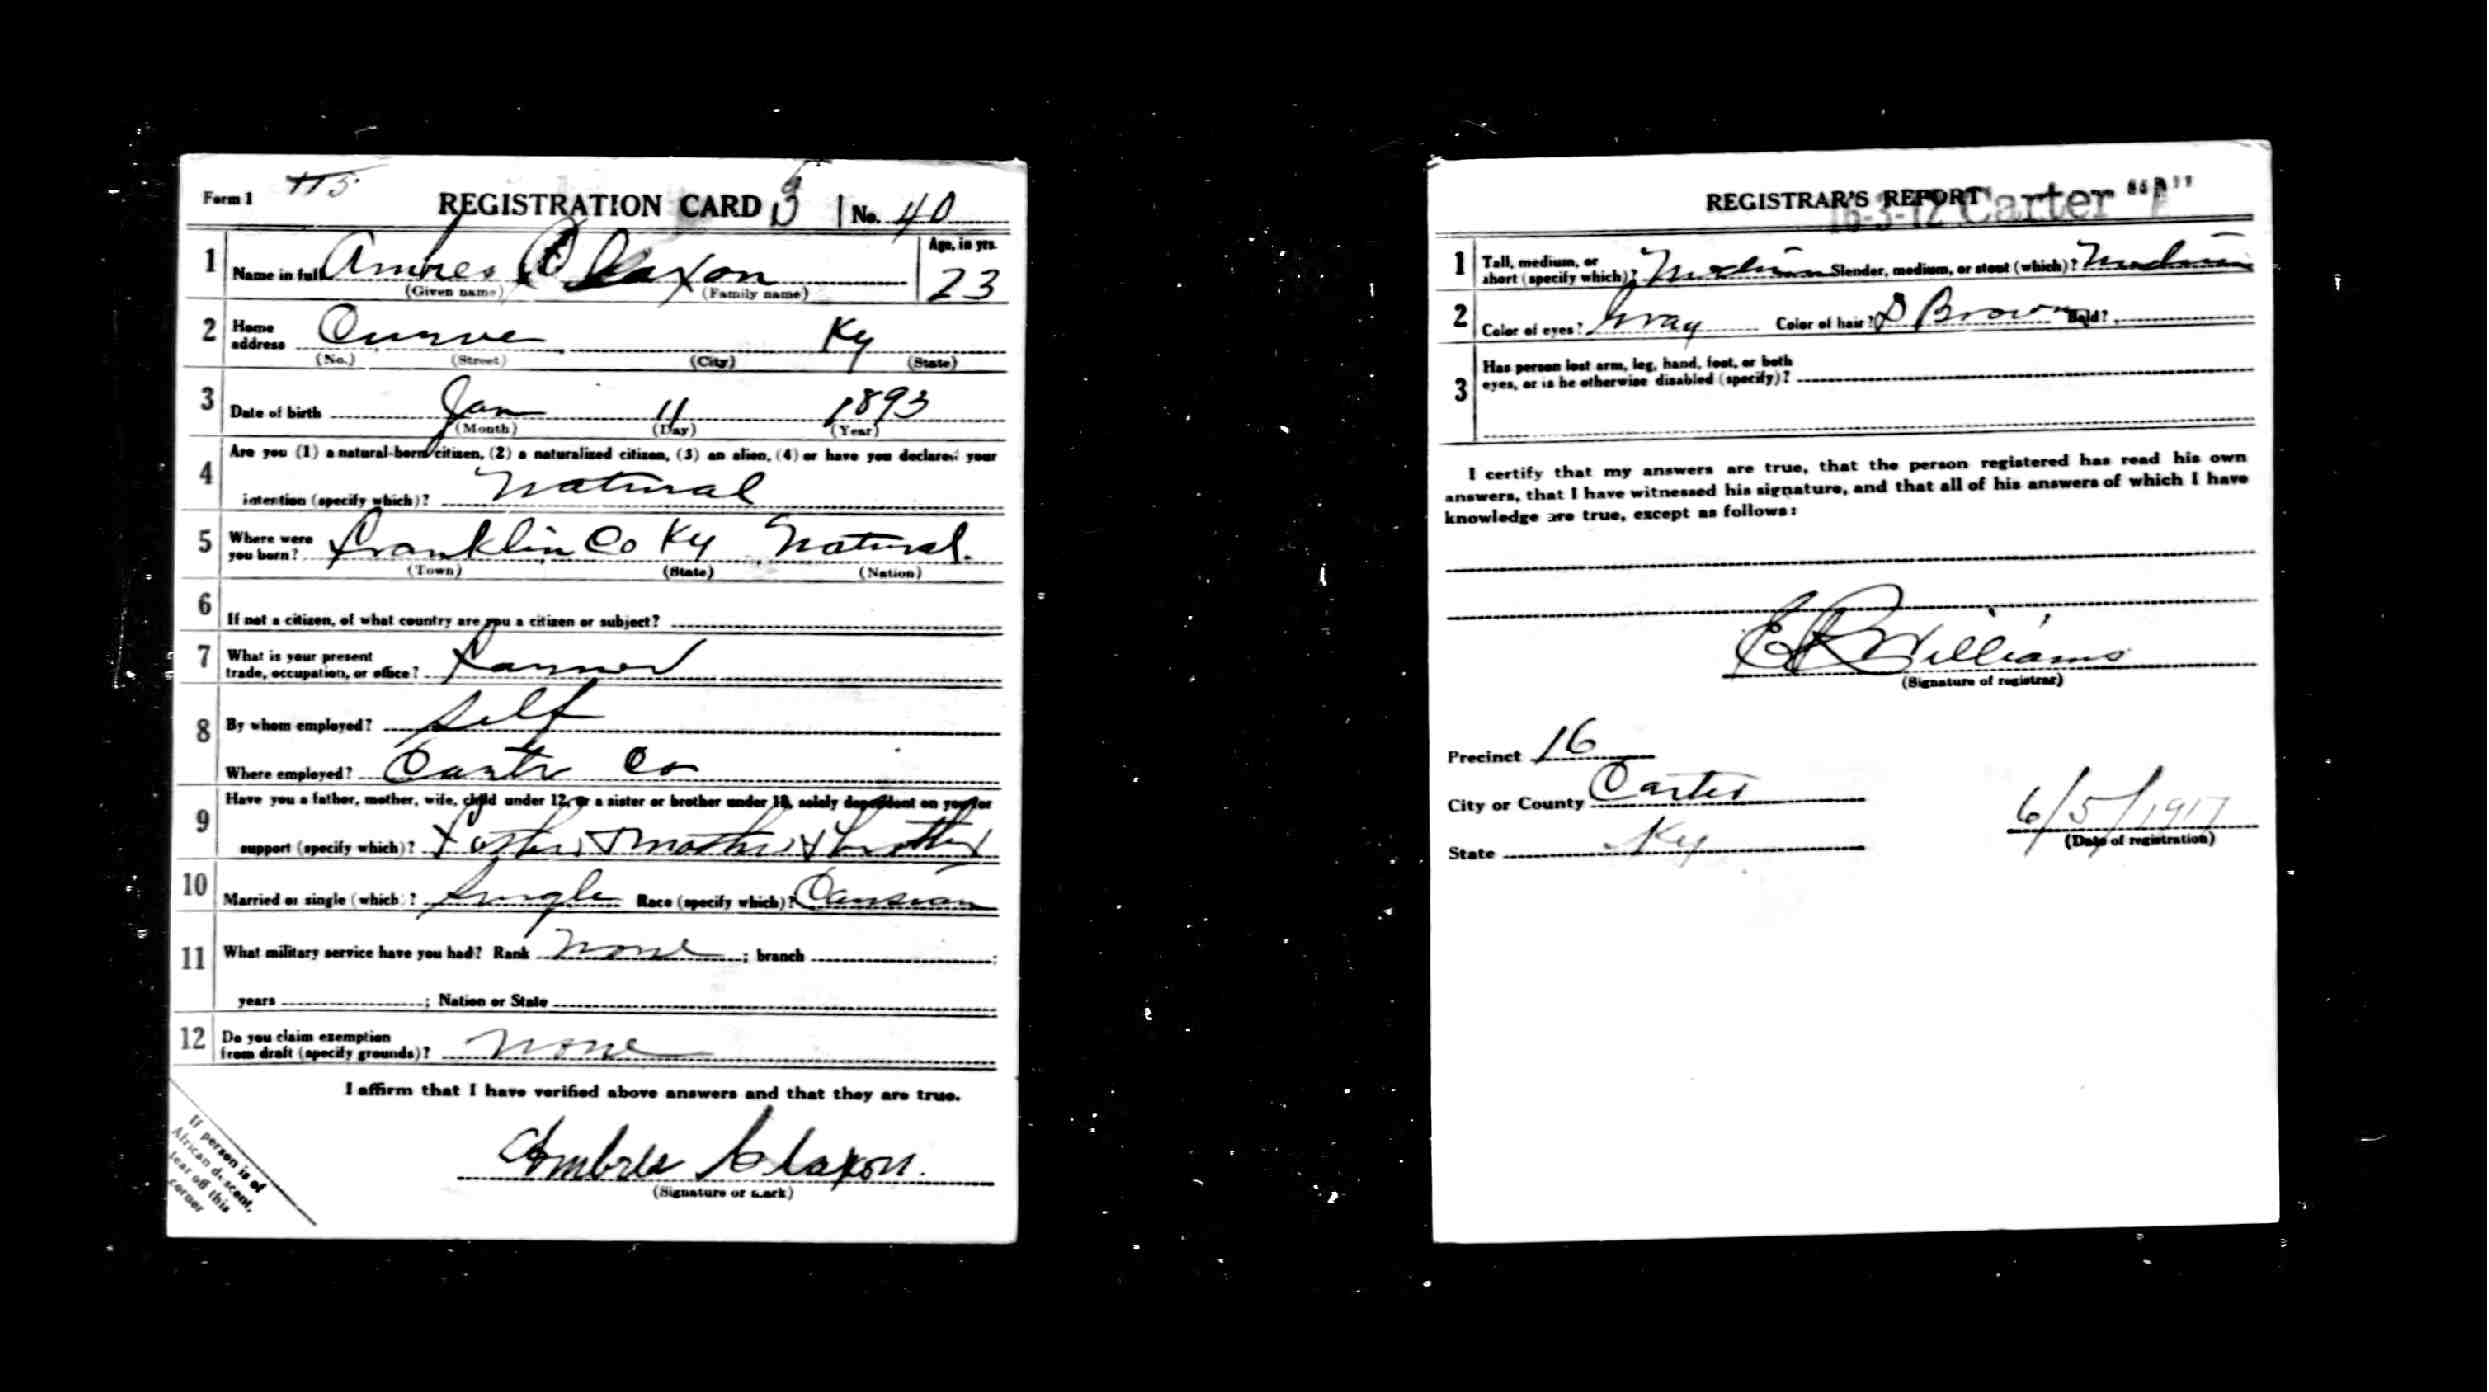 Form 1 115 REGISTRATION CARD 3 No. 40
1 Name in full Ambres Claxon Age, in yrs.
(Given name) (Family name) 23
2 Home address Ky
(No.) (Street) (City) (State)
3 Date of birth Jan 11 1893
(Month) (Day) (Year)
4 Are you (1) a natural-born citizen, (2) a naturalized citizen, (3) an alien, (4) or have you declared your
intention (specify which)? Natural
5 Where were you born? Franklin Co Ky Natural.
(Town) (State) (Nation)
6 If not a citizen, of what country are you a citizen or subject?
7 What is your present
trade, occupation, or office? Farmer
8 By whom employed? Self
Where employed? Carter Co
9 Have you a father, mother, wife, child under 12, or a sister or brother under 18, solely dependent on you for
support (specify which)? Father + mother + brother
10 Married or single (which)? Single Race (specify which)? Causian
11 What military service have you had? Rank None ; branch ;
years ; Nation or State
12 Do you claim exemption
from draft (specify grounds)? None
I affirm that I have verified above answers and that they are true.
Ambres Claxon.
(Signature or mark)
If person is of
African descent,
tear off this
corner
REGISTRAR'S REPORT
16-3-12 Carter "A"
1 Tall, medium, or
short (specify which)? Medium Slender, medium, or stout (which)? Medium
2 Color of eyes? Gray Color of hair? D Brown Bald?
3 Has person lost arm, leg, hand, foot, or both
eyes, or is he otherwise disabled (specify)?
I certify that my answers are true, that the person registered has read his own
answers, that I have witnessed his signature, and that all of his answers of which I have
knowledge are true, except as follows:
E R Williams
(Signature of registrar)
Precinct 16
City or County Carter
State Ky
6/5/1917
(Date of registration)